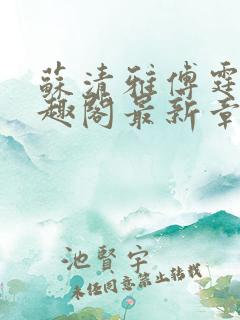 蘇清雅傅霆
趣閣最新章
池賢宇
未經同意禁止轉載